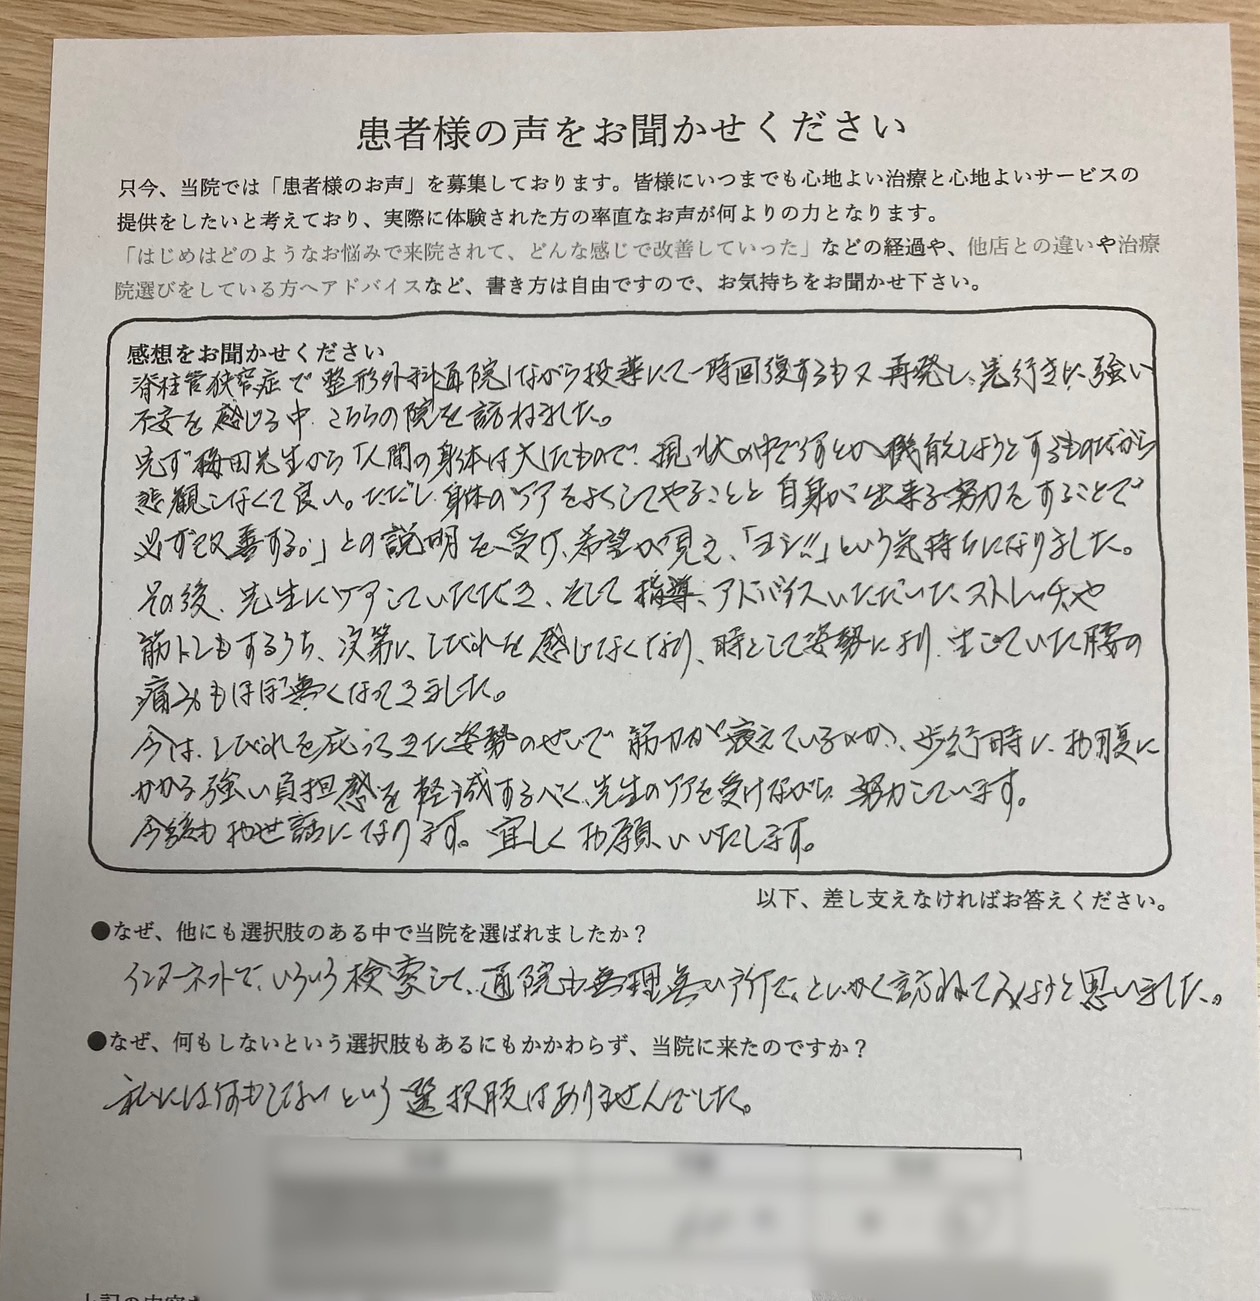 患者様の声をお聞かせください
只今、当院では「患者様のお声」を募集しております。皆様にいつまでも心地よい治療と心地よいサービスの
提供をしたいと考えており、実際に体験された方の率直なお声が何よりの力となります。
「はじめはどのようなお悩みで来院されて、どんな感じで改善していった」などの経過や、他店との違いや治療
院選びをしている方へアドバイスなど、書き方は自由ですので、お気持ちをお聞かせ下さい。
感想をお聞かせください
脊柱管狭窄症で整形外科通院しながら投薬にて一時回復するも又再発し、先行きに強い
不安を感じる中、こちらの院を訪ねました。
先ず梅田先生から「人間の身体は大したもので、現状の中で何とか機能しようとするものだから
悲観しなくて良い。ただし、身体のケアをよくしてやることと自身が出来る努力をすることで
必ず改善する。」との説明を受け、希望が見え、「ヨシ!!」という気持ちになりました。
その後、先生にケアしていただき、そして指導、アドバイスいただいたストレッチや
筋トレもするうち、次第に、しびれを感じなくなり、時として姿勢により、生じていた腰の
痛みもほぼ無くなってきました。
今は、しびれを庇ってきた姿勢のせいで筋力が衰えているのか、歩行時に、お腹に
かかる強い負担感を軽減するべく、先生のケアを受けながら努力しています。
今後もお世話になります。宜しくお願いいたします。
以下、差し支えなければお答えください。
●なぜ、他にも選択肢のある中で当院を選ばれましたか？
インターネットで、いろいろ検索して、通院も無理無い所で、とにかく訪ねてみようと思いました。
●なぜ、何もしないという選択肢もあるにもかかわらず、当院に来たのですか？
私には何もしないという選択肢はありませんでした。